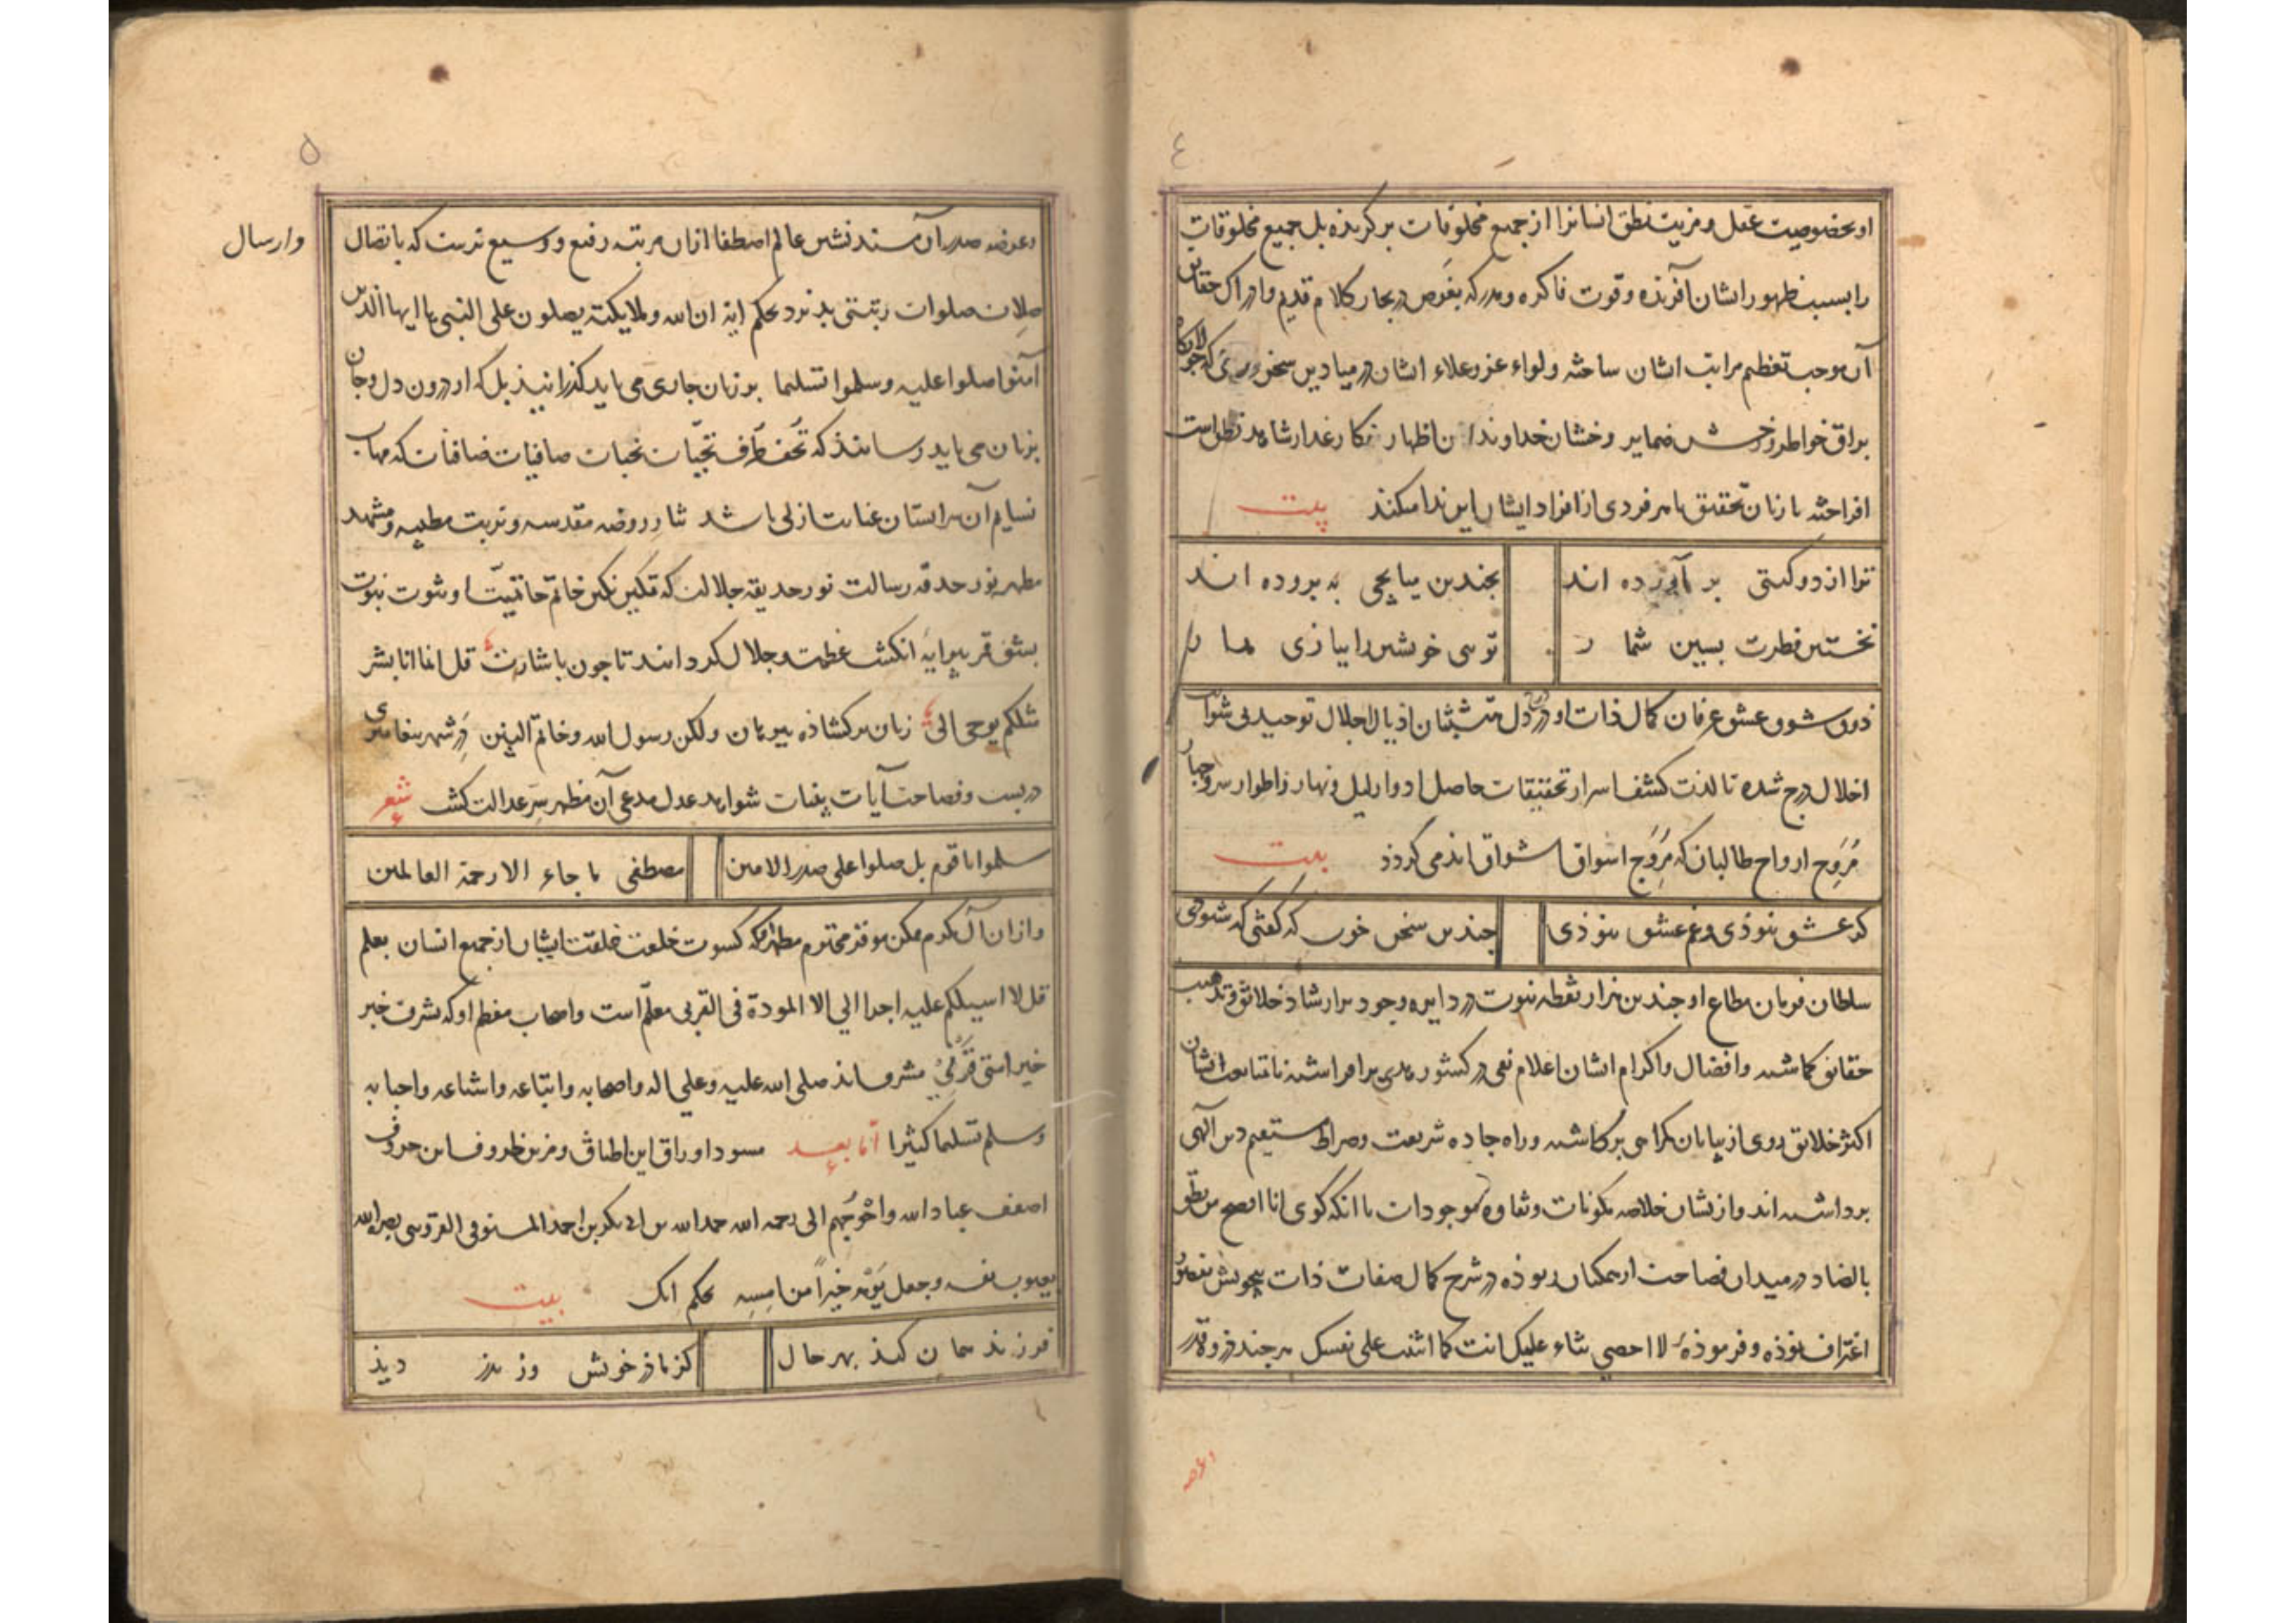 ٤
او بخصوصیت عقل و مزیت نطق انسانرا از جمیع مخلوقات برکزیده بل جمیع مخلوقات
را بسبب ظهور ایشان آفریذه و قوت فاکره و مدرکه بغوص در بحار کلام قدیم و ادراک حقایق
آن موجب تعظیم مراتب ایشان ساخته و لواء عز و علاء ایشان در میادین سخن وری که جولانکاه
براق خواطر و ضمایر و خشان خداوندان اظهار نطق است
افراخته با زبان تحقیق با هر فردی از افراد ایشان این ندا میکند بیت
ترا از دو کیتی بر آورده اند
بچندین میانجی به پرورده اند
نخستین فطرت پسین شمار
توی خویشتن را ببازی مدار
ذوق شوق و عشق عرفان کمال ذات او در دل متشبثان اذیال اجلال توحید بی شواب
اخلال درج شده تا لذت کشف اسرار تحقیقات حاصل ادوار لیل و نهار و اطوار
مُرَوِح ارواح طالبان که مُرَوِج اسواق اشواق اند می کردذ بیت
کر عشق نبوذی و غم عشق نبوذی
چندین سخن خوب که کفتی که شنودی
سلطان فرمان مطاع او چندین هزار نقطه نبوت در دایره وجود برای ارشاد خلایق و تذهیب
حقایق کماشته و افضال و اکرام ایشان اعلام در کشور هدی برافراشته تا بمتابعت ایشان
اکثر خلایق روی از بیابان کمراهی برکاشته و راه جاده شریعت و صراط مستقیم دین آلهی
برداشته اند و از یشان خلاصه مکونات و نقاوه موجودات با آنکه کوی انا افصح من نطق
بالضاد در میدان فصاحت از همکنان ربوذه در شرح کمال صفات ذات بیچونش بقصور
اعتراف نموذه و فرموذه لا احصی ثناء علیک انت کما اثنیت علی نفسک هر چند ذروه قدر
٥
و عرضه صدر آن مسند نشین عالم اصطفا ازان مرتبه رفیع و وسیع ترست که باتصال
وارسال
صلات صلوات رتبتی پذیرد بحکم ایة ان الله و ملایکته یصلون علی النبی یا ایها الذین
آمنوا صلوا علیه و سلموا تسلیما بر زبان جاری می باید کذرانیذ بل که از درون دل و جان
بزبان می باید رسانیذ که تُحَف طُرَف تحیّات نخبات صافیات ضافیات که مهاب
نسایم آن سرابستان عنایت ازلی باشد نثار روضه مقدسه و تربت مطیبه و مشهد
مطهر نور حدقه رسالت نور حدیقه جلالت که تمکین نکین خاتم خاتمیت او ثبوت نبوت
بشق قمر پیرایهٔ انکشت عظمت و جلال کردانند تا چون باشارت قل انما انا بشر
مثلکم یوحی الی زبان برکشاذه ببرهان ولکن رسول الله و خاتم النبیین در شهر پیغامبری
دربست و فصاحت آیات بینات شواهد عدل مدعی آن مظهر سِرّ عدالت کشت شعر
سلموا یا قوم بل صلوا علی صدر الامین
مصطفی ما جاء الا رحمة العالمین
و ازان آل مکرم ممکن موقر محترم مطهر که کسوت خلعت خلقت ایشان از جمیع انسان بعلم
قل لا اسیلکم علیه اجرا الی الا المودة فی القربی معلّم است و اصحاب معظم او که بشرف خبر
خیر امتی قَرْنِیْ مشرف اند صلی الله علیه و علی اله و اصحابه و اتباعه و اشیاعه و احبابه
و سلم تسلیما کثیرا اما بعد مسود اوراق این اطباق و مزین ظروف این حروف
اضعف عباد الله و احْوَجُهم الی رحمه الله حمد الله بن ابی بکر بن احمد المستوفی القزوینی بصره الله
بعیوب نفسه و جعل یَوْمَه خیراً من امسِه بحکم آنک بیت
فرزند همان کند بهر حال
کز ماذر خویش وز پذر دیذ